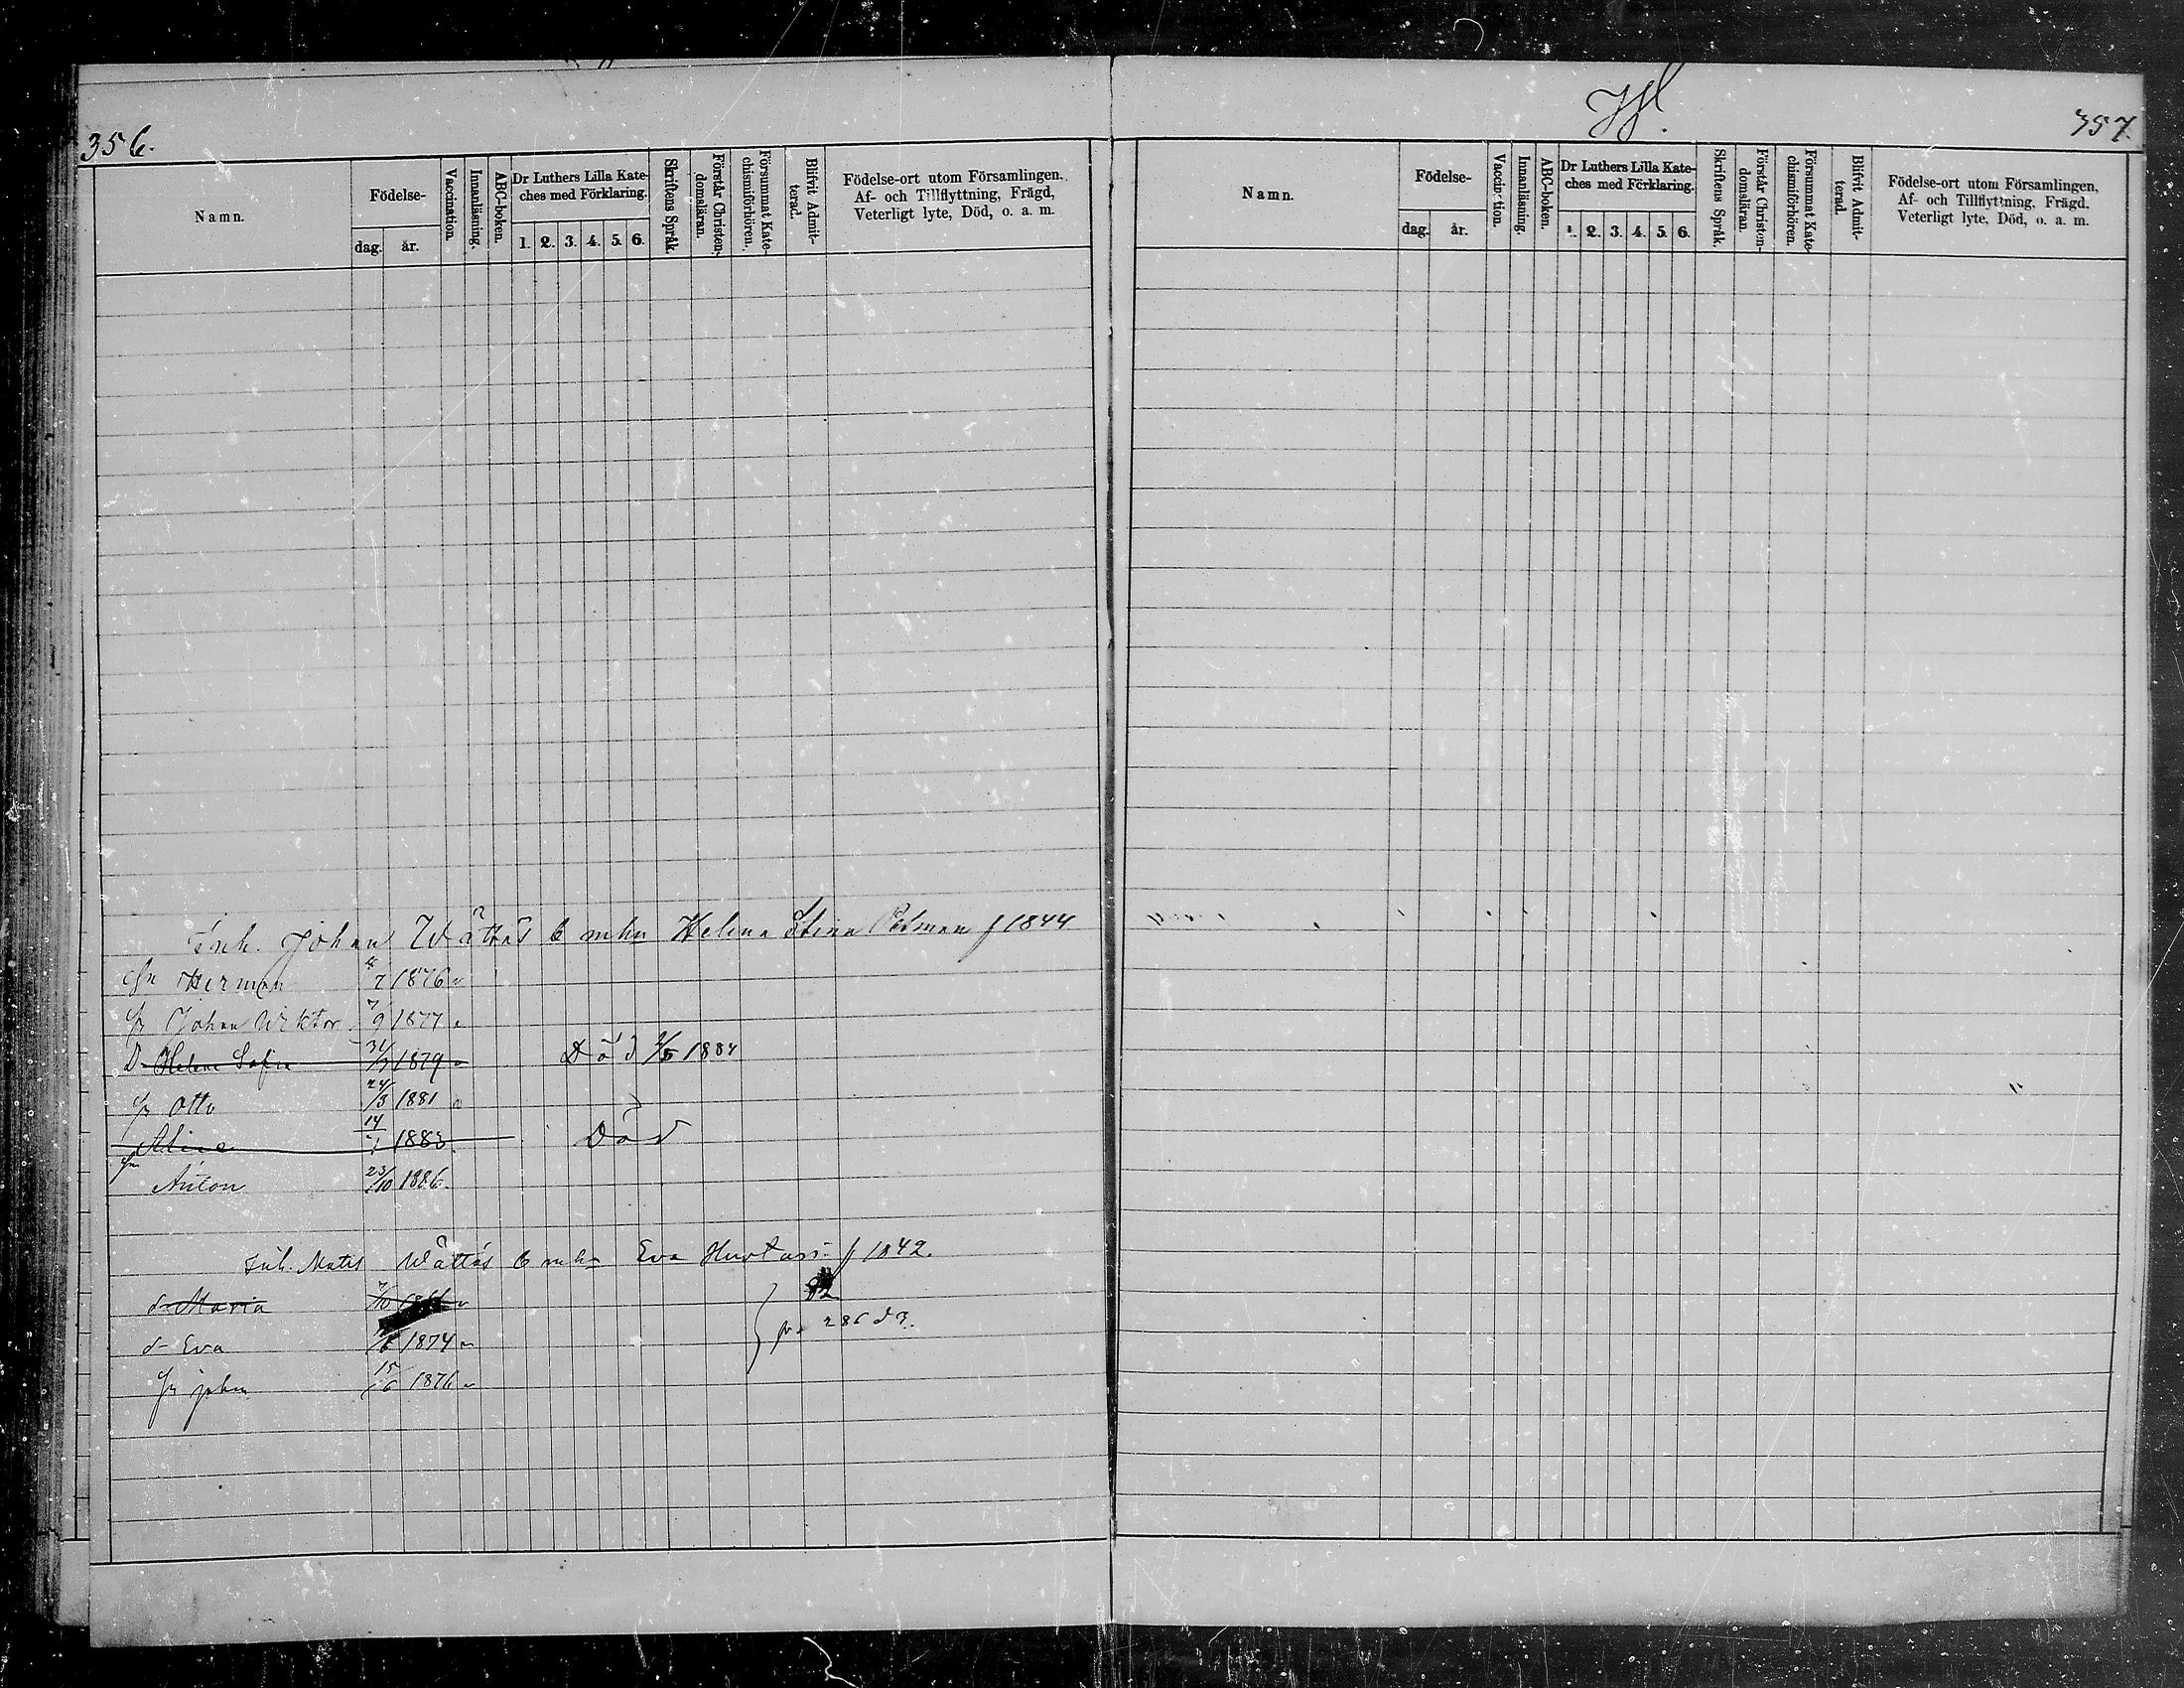 356.
Namn.
Födelse-
dag. år.
Vaccination.
Innanläsning.
ABC-boken.
Dr Luthers Lilla Kate-
ches med Förklaring.
1. 2. 3. 4. 5. 6.
Skriftens Språk.
Förstår Christen-
domsläran.
Försummat Kate-
chismiförhören.
Blifvit Admit-
terad.
Födelse-ort utom Församlingen,
Af- och Tillflyttning, Frägd,
Veterligt lyte, Död, o. a. m.
Inh. Johan Wåttås 6 mhn Helena Stina f 1844
Herman 7 1876
Johan Wiktor 7/9 1877
D Helena Sofia 31 1879 Död 1884
Otto 24/3 1881
Alina 14 1883 Död
Anton 23/10 1886
Inh. Mats Wåttås 6 mhn Eva f 1842.
d Maria
d Eva 1874
John 15/6 1876
286 d 3.
357.
Namn.
Födelse-
dag. år.
Vaccination.
Innanläsning.
ABC-boken.
Dr Luthers Lilla Kate-
ches med Förklaring.
1. 2. 3. 4. 5. 6.
Skriftens Språk.
Förstår Christen-
domsläran.
Försummat Kate-
chismiförhören.
Blifvit Admit-
terad.
Födelse-ort utom Församlingen,
Af- och Tillflyttning, Frägd,
Veterligt lyte, Död, o. a. m.